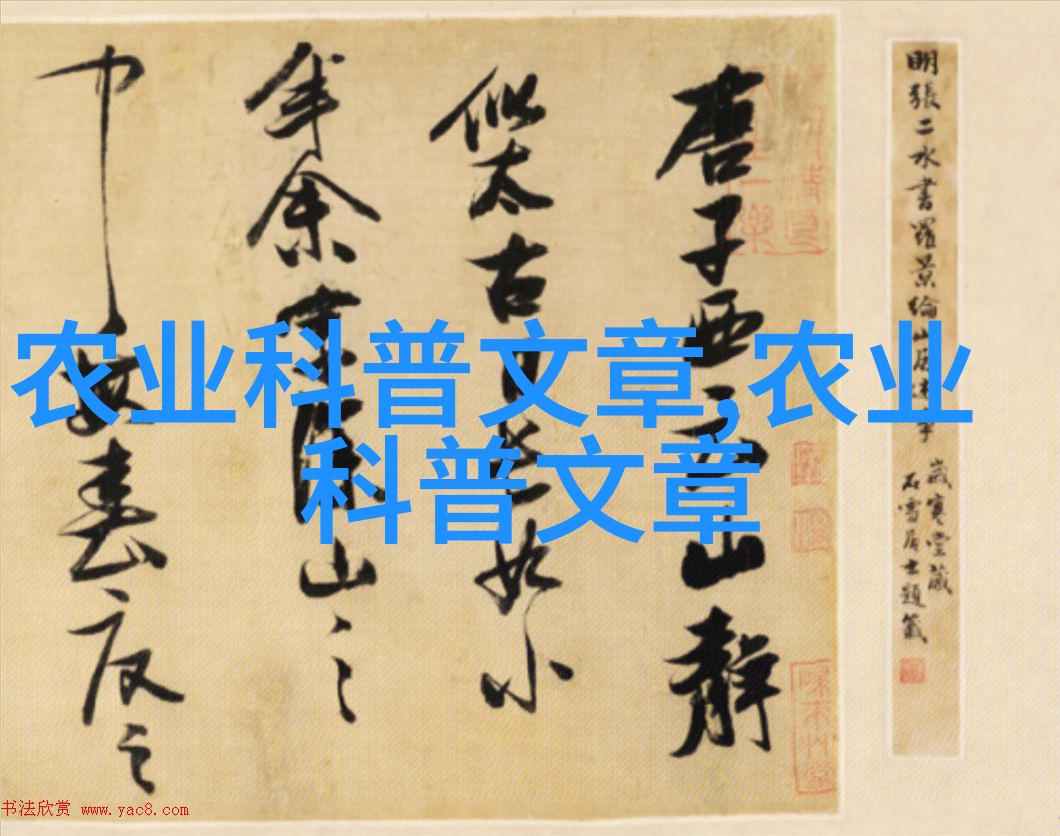 唐子西云山靜
似太古日長如小
年余家深山之
中每春夏之
明張二水書羅景綸山居
歲寒堂藏
石雪居士題籤
农业科普文章,农业
科普文章
书法欣赏 www.yac8.com